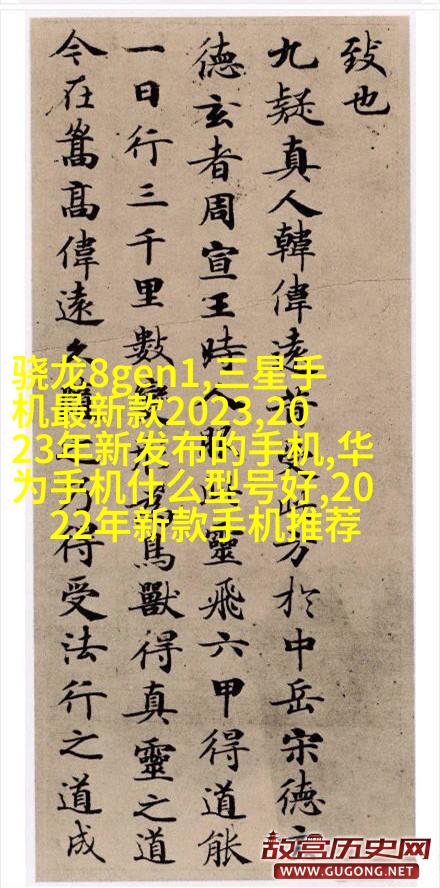 致也
九疑真人韓偉遠昔受此方於中岳宋德玄
德玄者周宣王時人服此靈飛六甲得道能
一日行三千里數變形為鳥獸得真靈之道
今在嵩高偉遠久隨之乃得受法行之道成
骁龙8gen1,三星手
机最新款2023,20
23年新发布的手机,华
为手机什么型号好,20
22年新款手机推荐
故宫历史网
WWW.GUGONG.NET